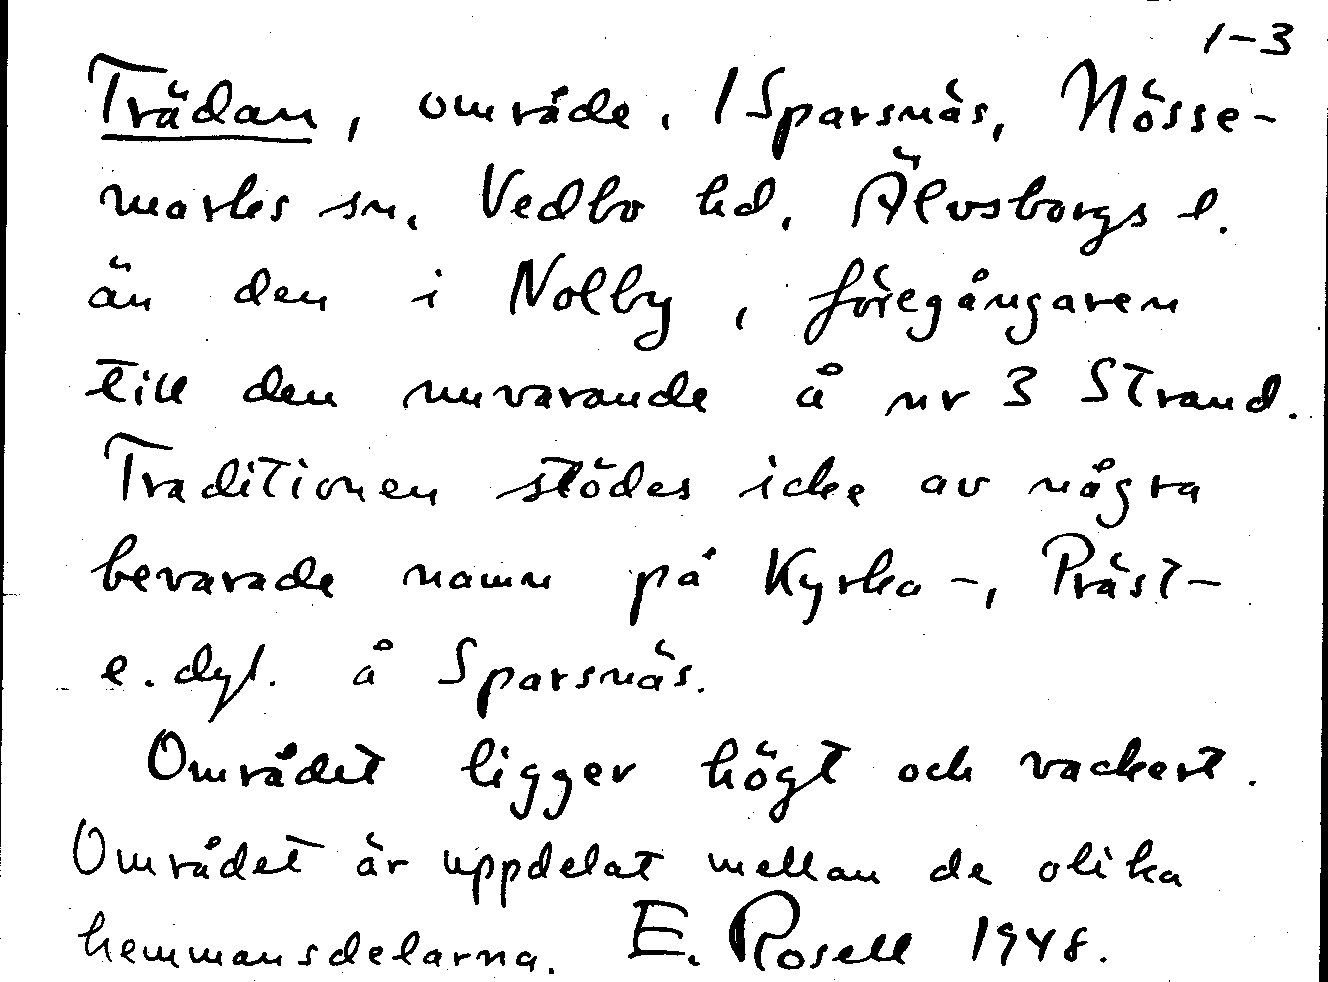 1-3
Trädan, område. 1 Sparsnäs, Nösse-
marks sn, Vedbo hd, Älvsborgs l.
än den i Nolby, föregångaren
till den nuvarande å nr 3 Strand.
Traditionen stödes icke av några
bevarade namn på Kyrko-, Präst-
e. dyl. å Sparsnäs.
Området ligger högt och vackert.
Området är uppdelat mellan de olika
hemmansdelarna. E. Rosell 1948.